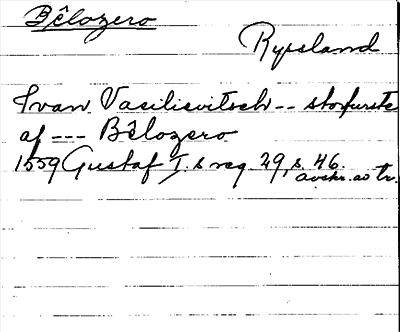 Bêlozero
Ryssland
Ivan Vasilievitsch -- storfurste
af --- Bêlozero
1559 Gustaf I.s reg 29, s. 46.
avskr. av tr.